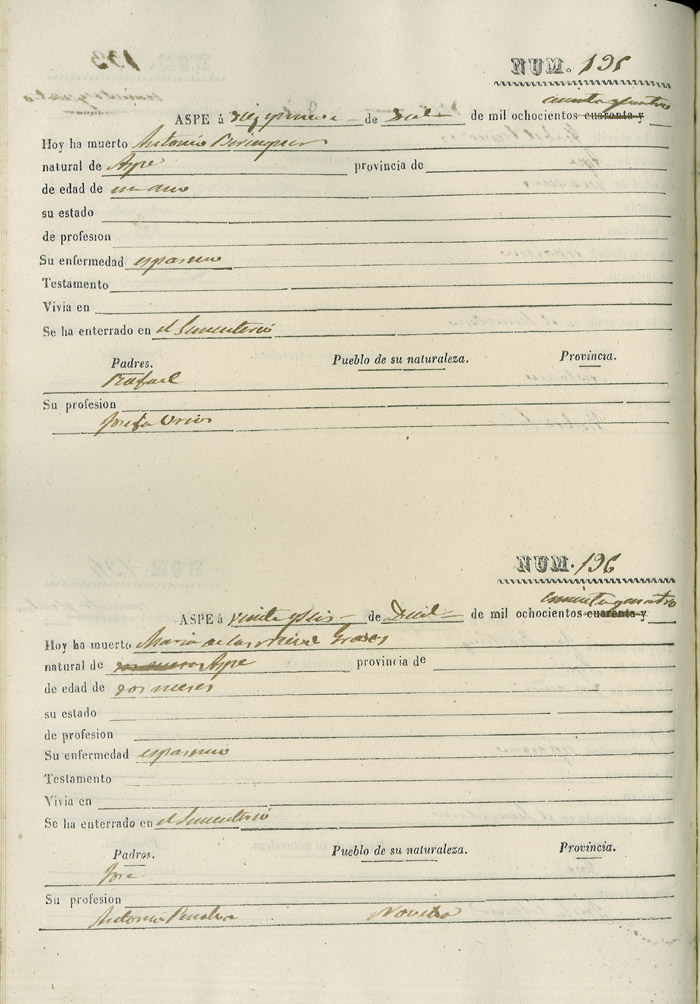 NUM. 195
cincuenta y cuatro
ASPE á diez y nueve de Dice de mil ochocientos cuarenta y
Hoy ha muerto Antonio Berenguer
natural de Aspe provincia de
de edad de un año
su estado
de profesion
Su enfermedad espasmo
Testamento
Vivia en
Se ha enterrado en el Sementerio
Padres. Pueblo de su naturaleza. Provincia.
Rafael
Su profesion
Josefa
NUM. 196
cincuenta y cuatro
ASPE á veinte y seis de de mil ochocientos cuarenta y
Hoy ha muerto Maria de las Nieve
natural de Aspe provincia de
de edad de dos meses
su estado
de profesion
Su enfermedad espasmo
Testamento
Vivia en
Se ha enterrado en el Sementerio
Padres. Pueblo de su naturaleza. Provincia.
Jose
Su profesion
Antonia Penalva Novelda